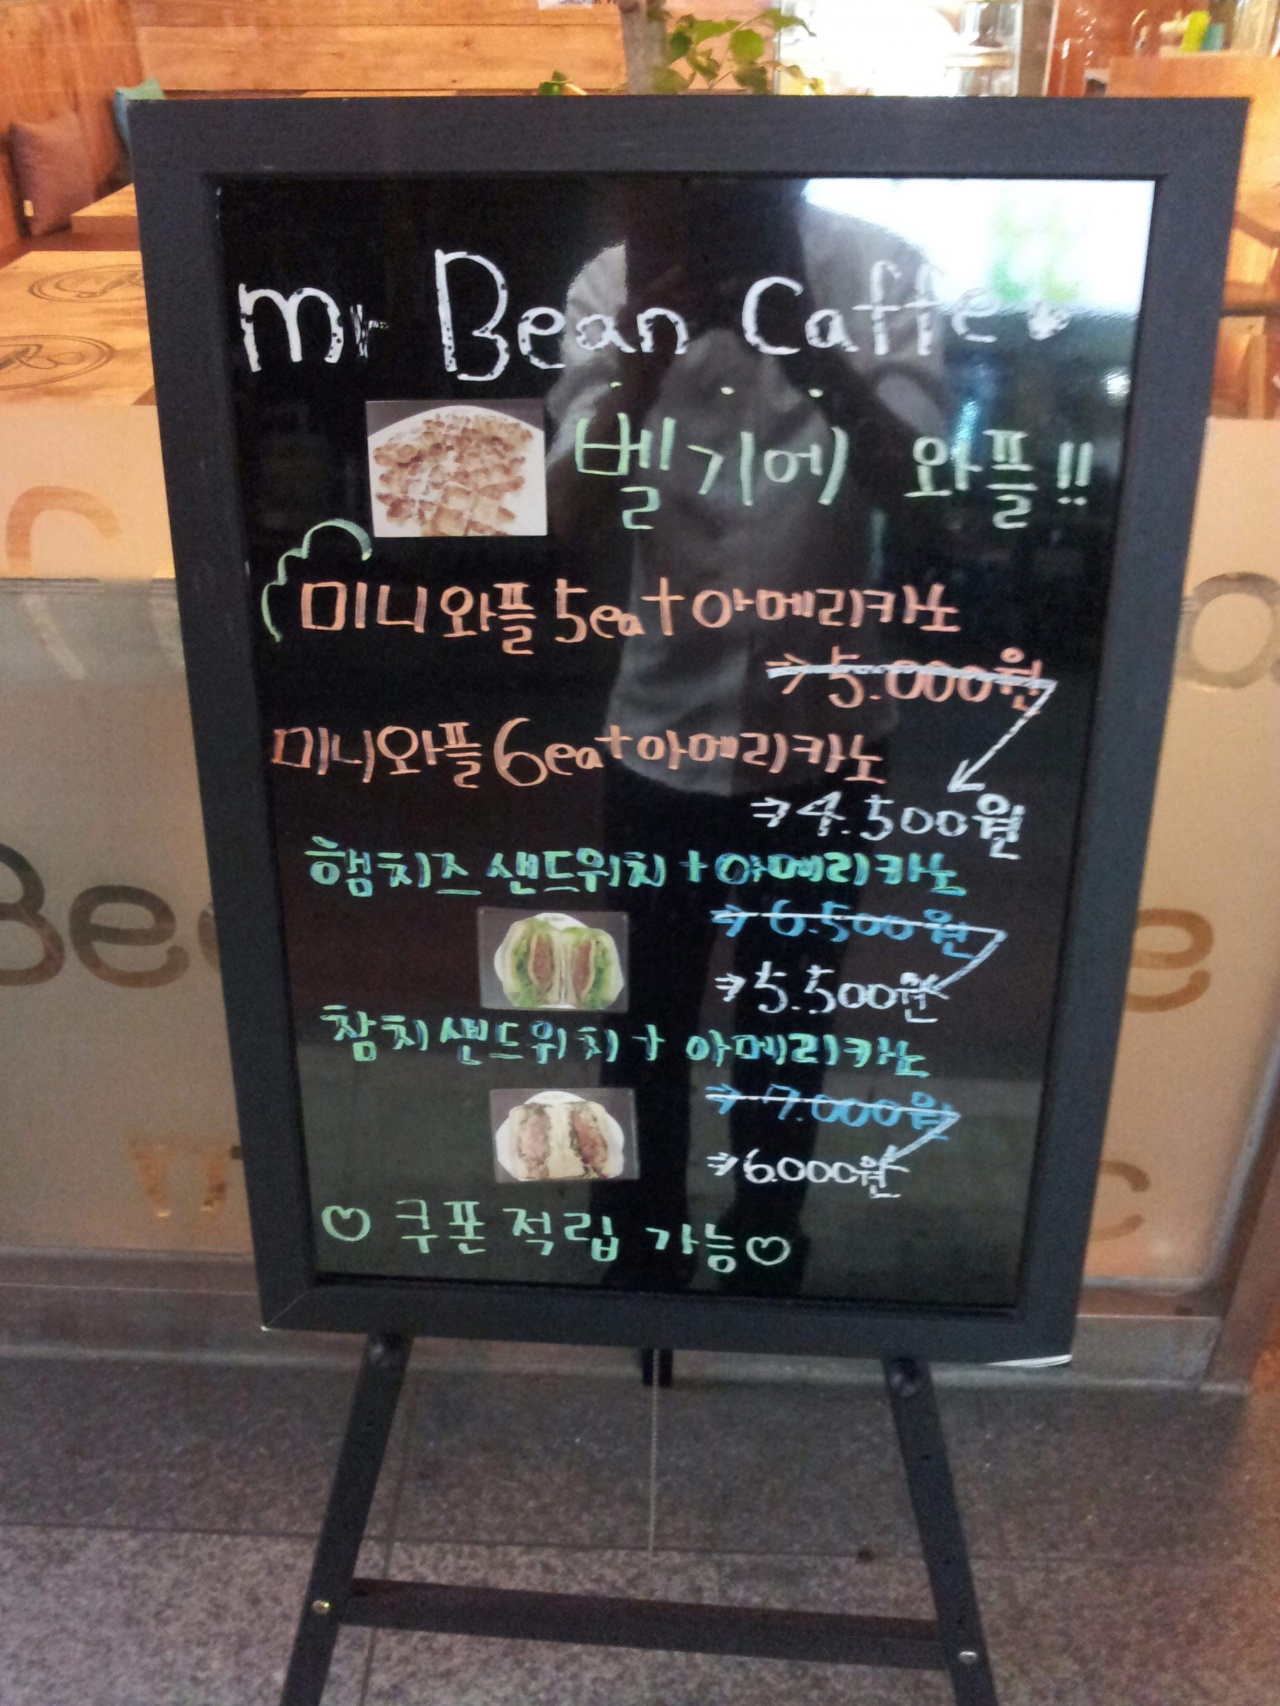 mr Bean Caffe
벨기에 와플!!
미니와플 5ea+아메리카노
⇒ 5.000원
미니와플 6ea+아메리카노
⇒ 4.500원
햄치즈 샌드위치+아메리카노
⇒ 6.500원
⇒ 5.500원
참치샌드위치+ 아메리카노
⇒ 7.000원
⇒ 6.000원
♡ 쿠폰 적립 가능♡